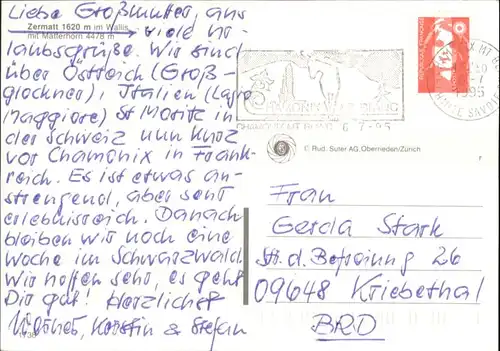 Liebe Großmutter, aus
Zermatt 1620 m im Wallis
mit Matterhorn 4478 m
viele Ur-
laubsgrüße. Wir sind
über Östreich (Groß-
glockner), Italien (Lago
Maggiore) St Moritz in
der Schweiz nun kurz
vor Chamonix in Frank-
reich. Es ist etwas an-
strengend, aber sehr
erlebnisreich. Danach
bleiben wir noch eine
Woche im Schwarzwald.
Wir hoffen sehr, es geht
Dir gut! Herzlichst
Werner, Kerstin & Stefan
CHAMONIX MT BLANC
6-7-95
1995
© Rud. Suter AG, Oberrieden/Zürich
Frau
Gerda Stark
Str. d. Befreiung 26
09648 Kriebethal
BRD